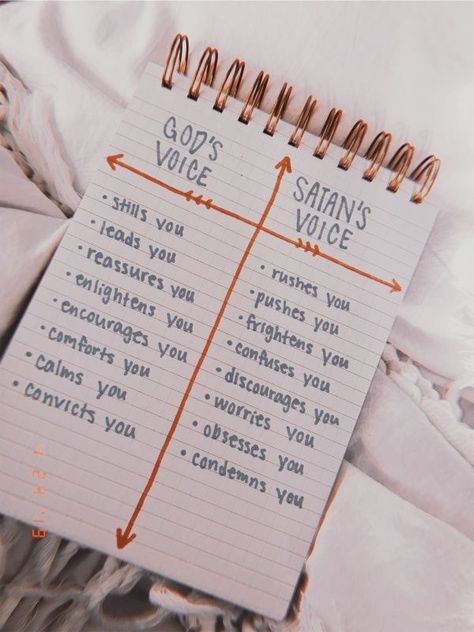 GOD'S
VOICE
• stills you
• leads you
• reassures you
• enlightens you
• encourages you
• comforts you
• calms you
• convicts you
SATAN'S
VOICE
• rushes you
• pushes you
• frightens you
• confuses you
• discourages you
• worries you
• obsesses you
• condemns you